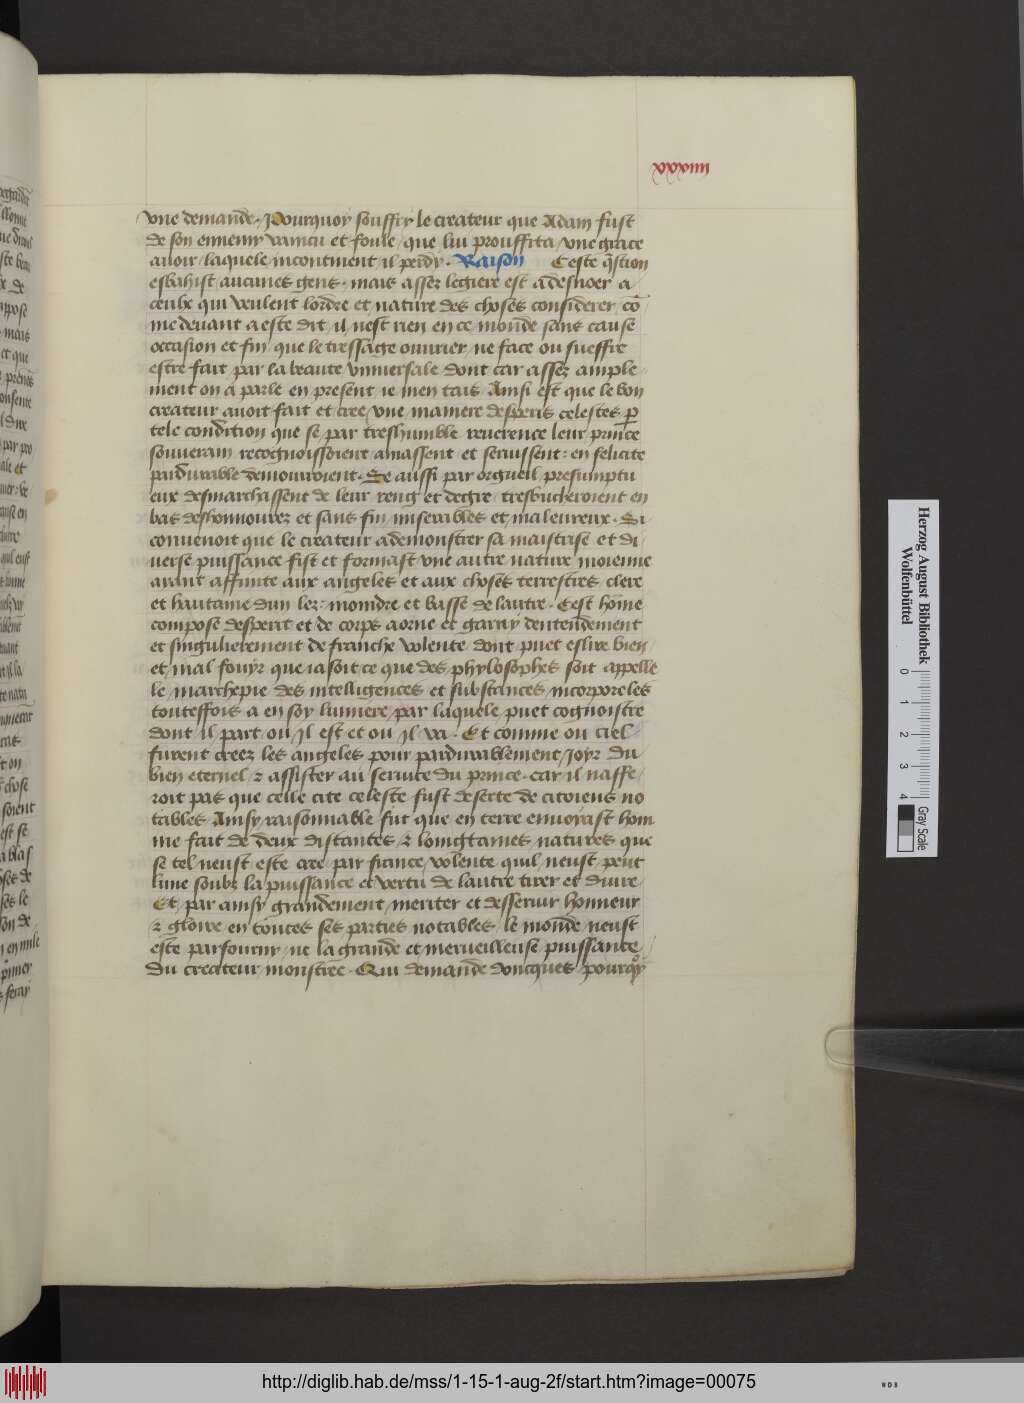 xxxiiii
vne demande. Pourquoy souffry le createur que Adam fust
de son ennemy vaincu et foule / que lui prouffita / vne grace
auoir / laquele incontinent il perdy. Raison Ceste q̃stion
esbahist aucunes gens. mais assez legiere est a desnoer a
ceulx qui veulent lordre et nature des choses considerer / cõ
me deuant a este dit / il nest rien en ce monde sans cause
occasion et fin que le tressage ouurier ne face ou sueffre
estre fait par la beaute vniuersale dont car assez ample
ment on a parle en present ie men tais Ainsi est que le bon
createur auoit fait et cree vne maniere desperis celestes p
tele condition que se par treshumble reuerence leur prince
souuerain recognoissoient amassent et seruissent: en felicite
pardurable demourroient. Se aussi par orgueil presumptu
eux desmarchassent de leur reng et degre / tresbucheroient en
bas deshonnourez et sans fin miserables et maleureux. Si
conuenoit que le createur a demonstrer sa maistrise et di
uerse puissance fist et formast vne autre nature moienne
aiant affinite aux angeles et aux choses terrestres clere
et haultaine dun lez: moindre et basse de lautre. Cest hõme
compose desperit et de corps aorne et garny dentendement
et singulierement de franche volente dont puet eslire bien
et mal fouyr que ia soit ce que des phylosophes soit appelle
le marchepie des intelligences et substances incorporeles
touteffois a en soy lumiere / par laquele puet cognoistre
dont il part ou il est et ou il va. Et comme ou ciel
furent creez les angeles pour pardurablement / ioyr du
bien eternel / ⁊ assister au seruice du prince. car il naffe
roit pas que celle cite celeste fust deserte de citoiens no
tables Ainsy raisonnable fut que en terre enuoyast hom
me fait de deux distantes ⁊ loingtaines natures que
se tel neust este cree par france volente quil neust peut
lune soubz la puissance et vertu de lautre tirer et duire
Et par ainsy grandement meriter et desseruir honneur
⁊ gloire en toutes ses parties notables / le monde neust
este parfourny / ne la grande et merueilleuse puissance
du createur monstree. Qui demande doncques pourqͦy
Herzog August Bibliothek
Wolfenbüttel
0 1 2 3 4
Gray Scale
http://diglib.hab.de/mss/1-15-1-aug-2f/start.htm?image=00075
WDB